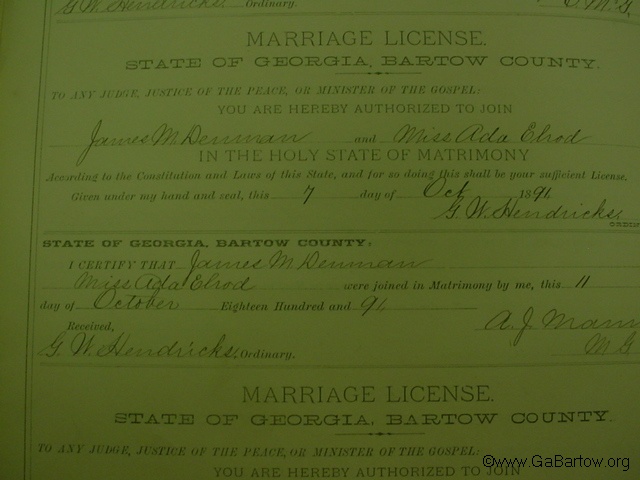 G. W. Hendricks, Ordinary.
MARRIAGE LICENSE.
STATE OF GEORGIA, BARTOW COUNTY.
TO ANY JUDGE, JUSTICE OF THE PEACE, OR MINISTER OF THE GOSPEL:
YOU ARE HEREBY AUTHORIZED TO JOIN
James M Denman and Miss Ada Elrod
IN THE HOLY STATE OF MATRIMONY
According to the Constitution and Laws of this State, and for so doing this shall be your sufficient License.
Given under my hand and seal, this 7 day of Oct 1891,
G. W. Hendricks,
ORDIN
STATE OF GEORGIA, BARTOW COUNTY:
I CERTIFY THAT James M Denman
Miss Ada Elrod were joined in Matrimony by me, this 11
day of October Eighteen Hundred and 91,
Received, A. J. Mann
G. W. Hendricks, Ordinary. M G
MARRIAGE LICENSE.
STATE OF GEORGIA, BARTOW COUNTY.
TO ANY JUDGE, JUSTICE OF THE PEACE, OR MINISTER OF THE GOSPEL:
YOU ARE HEREBY AUTHORIZED TO JOIN
©www.GaBartow.org